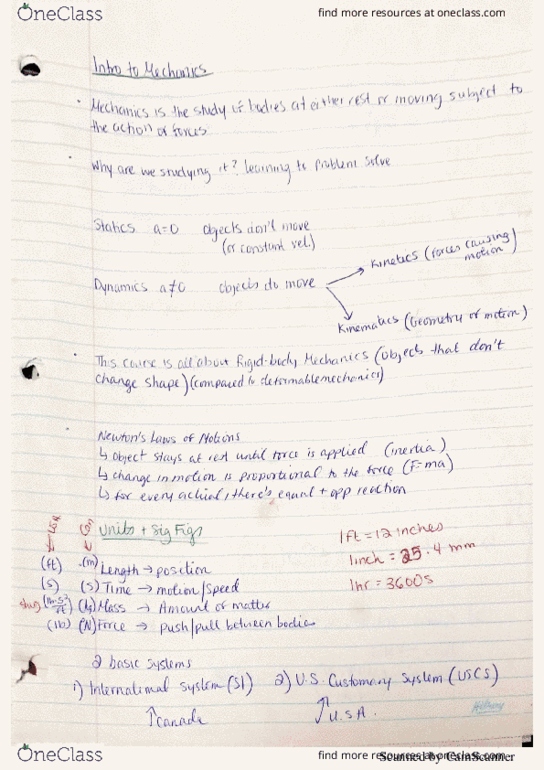 OneClass
find more resources at oneclass.com
Intro to Mechanics
Mechanics is the study of bodies at either rest or moving subject to
the action of forces
Why are we studying it? learning to problem solve
Statics a=0 objects don't move
(or constant vel.)
Dynamics a≠0 objects do move
Kinetics (forces causing
motion)
Kinematics (Geometry of motion)
This course is all about Rigid-body Mechanics (objects that don't
change shape) (compared to deformable mechanics)
Newton's Laws of Motions
↳ object stays at rest until force is applied (inertia)
↳ change in motion is proportional to the force (F=ma)
↳ for every action, there's equal + opp reaction
Units + Sig Figs
1ft = 12 inches
1inch = 25.4 mm
1hr = 3600s
(ft) (m) Length → position
(s) (s) Time → motion/speed
slug (lb·s²/ft) (kg) Mass → Amount of matter
(lb) (N) Force → push/pull between bodies
2 basic systems
1) International System (SI) 2) U.S. Customary System (USCS)
↑ Canada ↑ U.S.A.
OneClass
find more resources at oneclass.com
Scanned by CamScanner